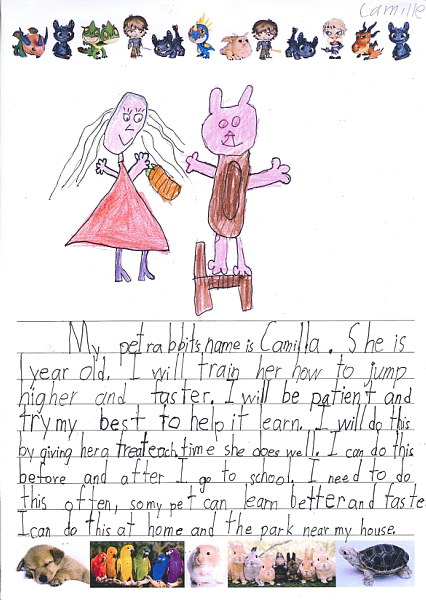 Camille
My pet rabbits name is Camilla. She is
1 year old. I will train her how to jump
higher and faster. I will be patient and
try my best to help it learn. I will do this
by giving her a treat each time she does well. I can do this
before and after I go to school. I need to do
this often, so my pet can learn better and faste
I can do this at home and the park near my house.